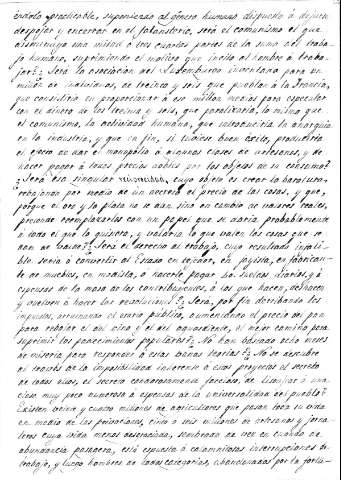 creerlo practicable, suponiendo al género humano dispuesto á dejarse
despojar y encerrar en el falansterio, será el comunismo el que
disminuya una mitad ó tres cuartas partes de la suma del traba-
jo humano, suprimiendo el motivo que incita al hombre á traba-
jar? ¿Será la asociacion del Luxemburgo inventada para un
millon de individuos, de treinta y seis que pueblan á la Francia,
que consistiria en proporcionar á ese millon medios para especular
con el dinero de los treinta y seis, que paralizaria, lo mismo que
el comunismo, la actividad humana, que introduciria la anarquia
en la industria, y que en fin, si tuviese buen éxito, produciria
el efecto de dar el monopolio á algunas clases de artesanos, y de
hacer pagar á todos precios dobles por los objetos de su consumo?
¿Será esa singular reciprocidad, cuyo objeto es crear la baratura,
rebajando por medio de un decreto el precio de las cosas, y que,
porque el oro y la plata no se dan sino en cambio de valores reales,
pretende reemplazarlos con un papel que se daria probablemente
á todo el que lo quisiera, y valdria lo que valen las cosas que se
dan de balde? ¿Será el derecho al trabajo, cuyo resultado infali-
ble seria ó convertir al Estado en tejedor, en joyista, en fabrican-
te de muebles, en modista, ó hacerle pagar los sueldos diarios, y á
espensas de la masa de los contribuyentes, á los que hacen, deshacen
y vuelven á hacer las revoluciones? ¿Será, por fin derribando los
impuestos, arruinando el erario público, aumentando el precio del pan
para rebajar el del vino y el del aguardiente, el mejor camino para
suprimir los padecimientos populares? ¿No han bastado ocho meses
de miseria para responder á esas vanas teorías? ¿No se descubre
al través de la imposibilidad inherente á esos proyectos el secreto
de todos ellos, el secreto condenadamente faccioso, de lisonjear á una
clase muy poco numerosa á espensas de la universalidad del pueblo?
Existen veinte y cuatro millones de agricultores que pasan toda su vida
en medio de las privaciones, cinco ó seis millones de artesanos y jorna-
leros cuya vida menos desgraciada, sembrada de vez en cuando de
abundancia pasagera, está espuesta á calamitosas interrupciones de
trabajo, y luego hombres de todas categorías, abandonados por la fortu-